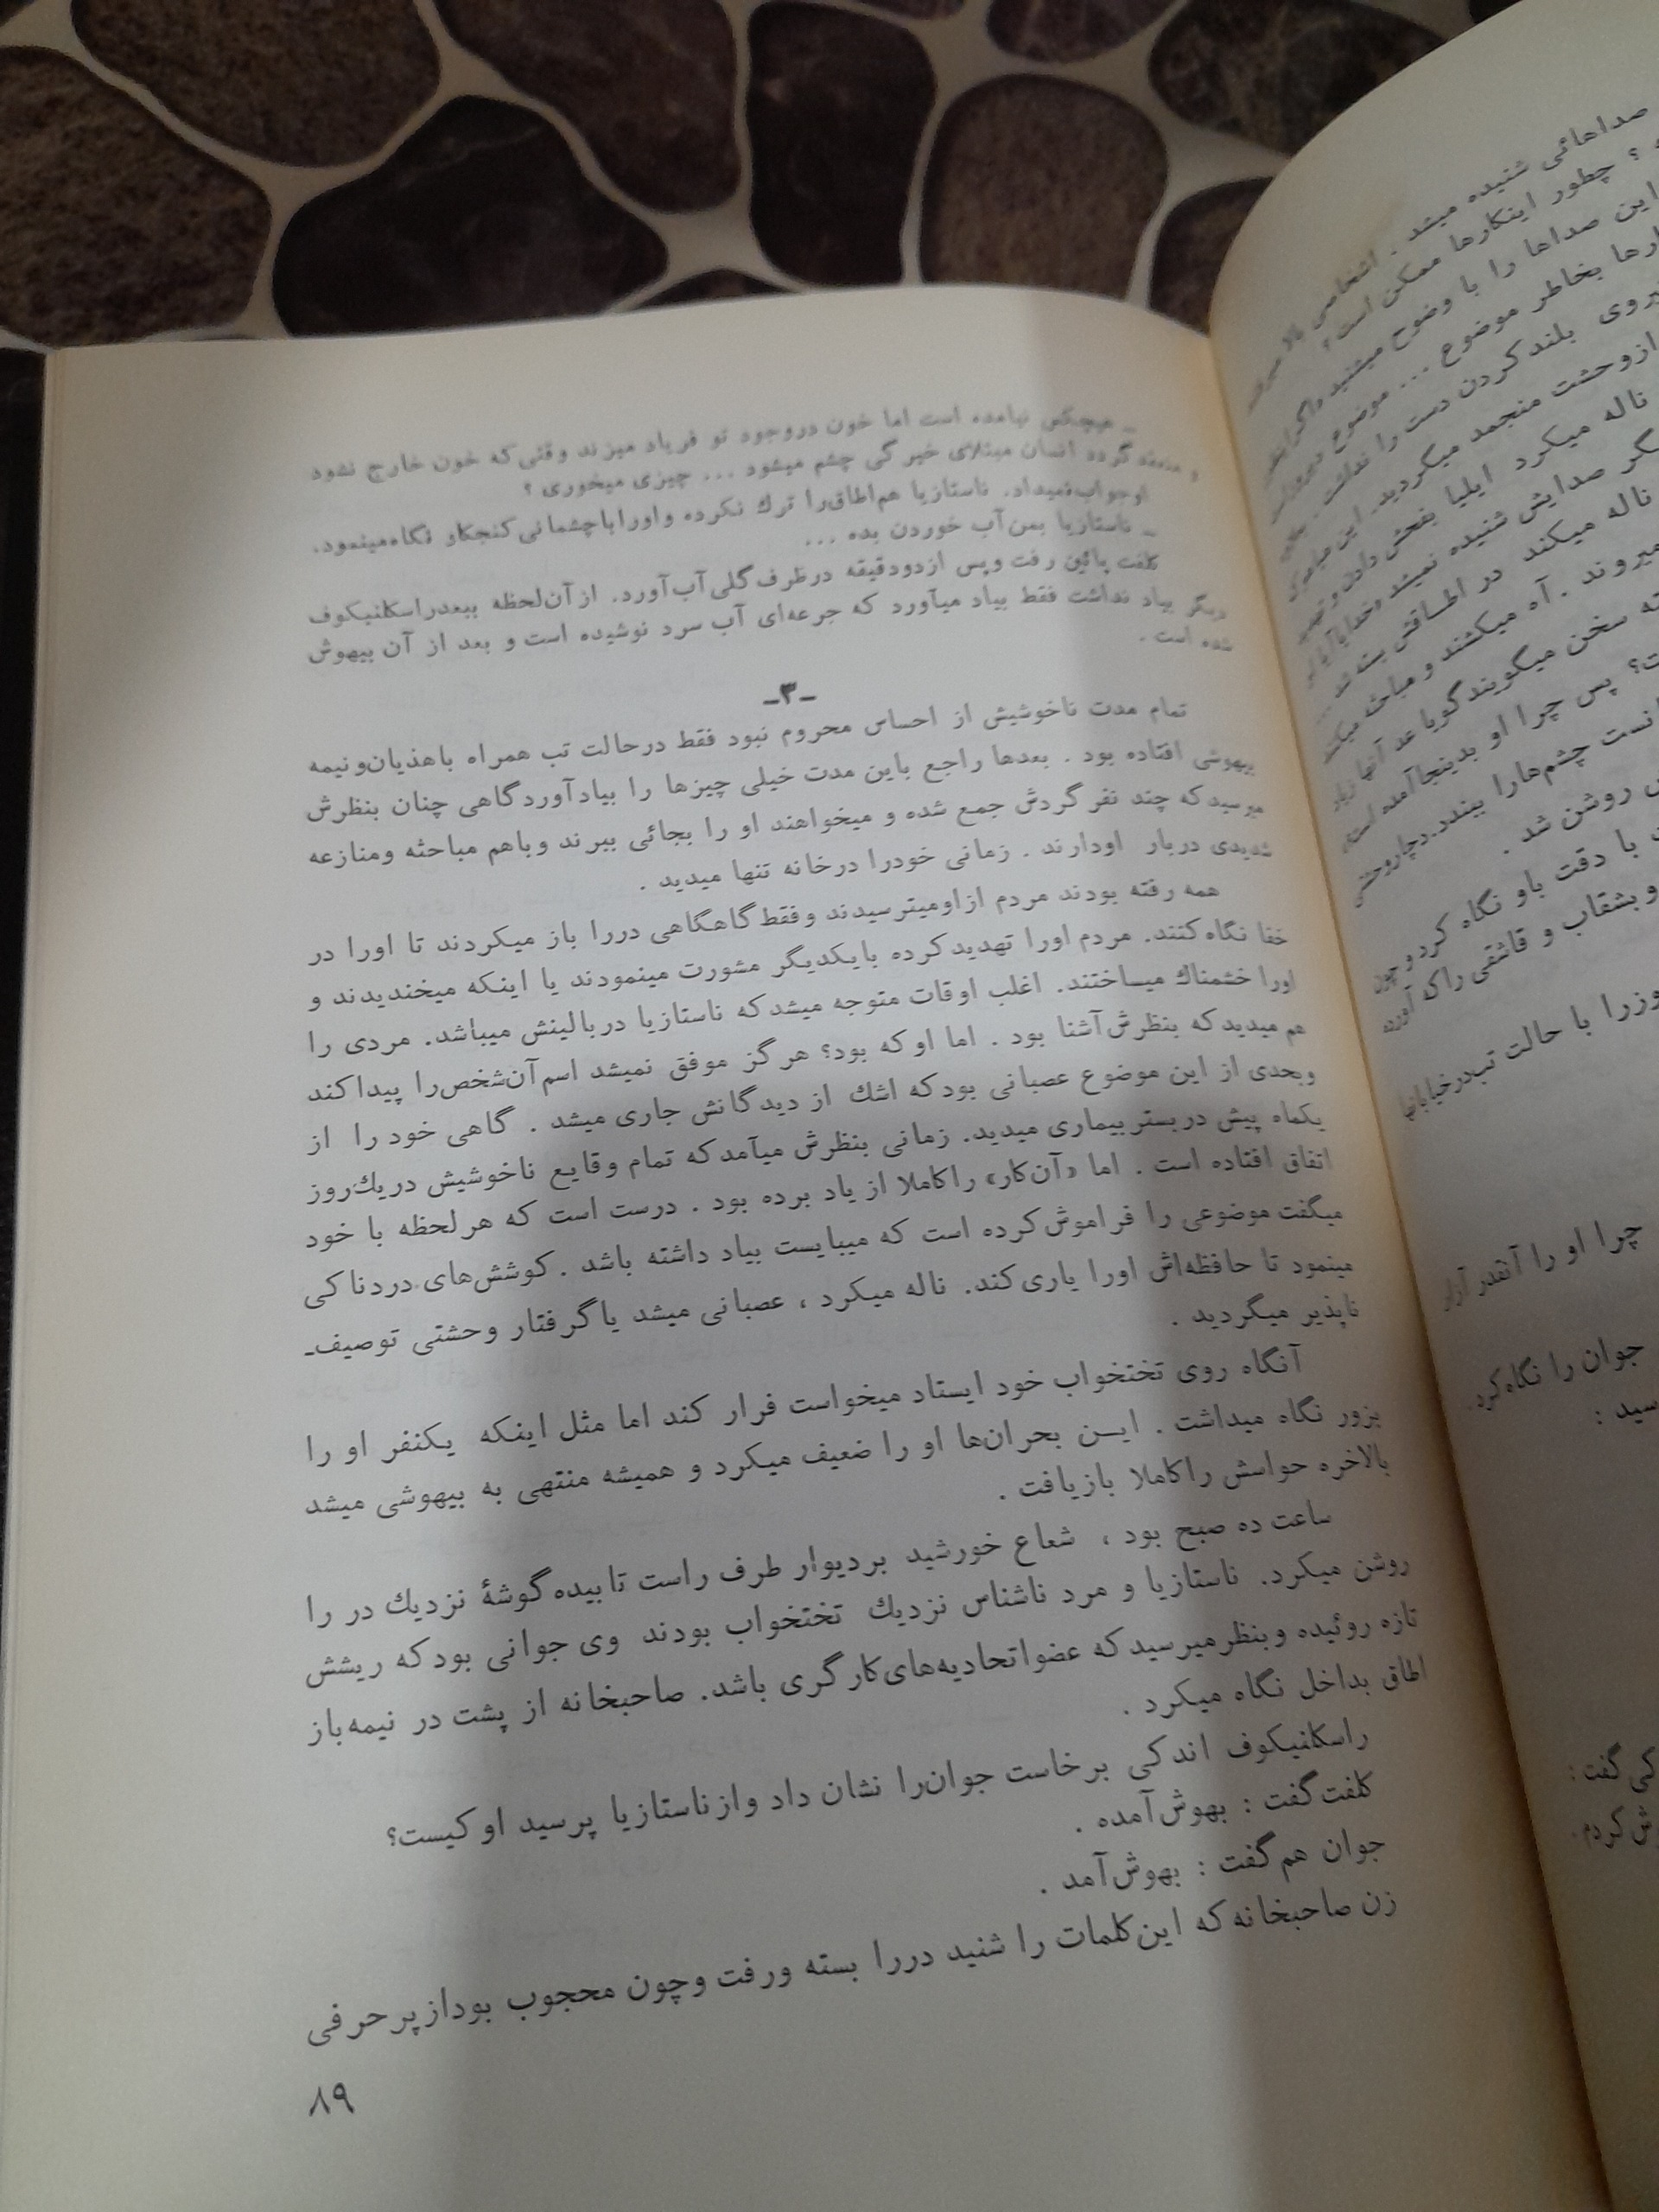 ـ هیچکس نیامده است اما خون دروجود تو فریاد میزند وقتی‌که خون خارج نشود
و منعقد گردد انسان مبتلای خیرگی چشم میشود ... چیزی میخوری ؟
اوجواب‌نمیداد. ناستازیا هم‌اطاق‌را ترك نکرده واورا باچشمانی‌کنجکاو نگاه‌مینمود.
ـ ناستازیا بمن‌آب خوردن بده ...
کلفت پائین رفت وپس ازدودقیقه درظرف‌گلی‌آب‌آورد. ازآن‌لحظه ببعدراسکلنیکوف
دیگر بیاد نداشت فقط بیاد میآورد که جرعه‌ای آب سرد نوشیده است و بعد از آن بیهوش
شده است .
ـ۳ـ
تمام مدت ناخوشیش از احساس محروم نبود فقط درحالت تب همراه باهذیان‌ونیمه
بیهوشی افتاده بود . بعدها راجع باین مدت خیلی چیزها را بیادآوردگاهی چنان بنظرش
میرسیدکه چند نفر گردش جمع شده و میخواهند او را بجائی ببرند وباهم مباحثه ومنازعه
شدیدی دربار اودارند . زمانی خودرا درخانه تنها میدید .
همه رفته بودند مردم ازاومیترسیدند وفقط گاهگاهی دررا باز میکردند تا اورا در
خفا نگاه‌کنند. مردم اورا تهدیدکرده بایکدیگر مشورت مینمودند یا اینکه میخندیدند و
اورا خشمناك میساختند. اغلب اوقات متوجه میشدکه ناستازیا دربالینش میباشد. مردی را
هم میدیدکه بنظرش‌آشنا بود . اما اوکه بود؟ هرگز موفق نمیشد اسم‌آن‌شخص‌را پیداکند
وبحدی از این موضوع عصبانی بودکه اشك از دیدگانش جاری میشد . گاهی خود را از
یکماه پیش دربستربیماری میدید. زمانی بنظرش میآمدکه تمام وقایع ناخوشیش دریك‌روز
اتفاق افتاده است . اما «آن‌کار» راکاملا از یاد برده بود . درست است که هرلحظه با خود
میگفت موضوعی را فراموش‌کرده است که میبایست بیاد داشته باشد .کوشش‌های دردناکی
مینمود تا حافظه‌اش اورا یاری‌کند. ناله میکرد ، عصبانی میشد یاگرفتار وحشتی توصیف‌ـ
ناپذیر میگردید .
آنگاه روی تختخواب خود ایستاد میخواست فرار کند اما مثل اینکه یکنفر او را
بزور نگاه میداشت . ایـن بحران‌ها او را ضعیف میکرد و همیشه منتهی به بیهوشی میشد
بالاخره حواسش راکاملا بازیافت .
ساعت ده صبح بود ، شعاع خورشید بردیوار طرف راست تابیده گوشهٔ نزدیك در را
روشن میکرد. ناستازیا و مرد ناشناس نزدیك تختخواب بودند وی جوانی بودکه ریشش
تازه روئیده وبنظرمیرسیدکه عضواتحادیه‌های‌کارگری باشد. صاحبخانه از پشت در نیمه‌باز
اطاق بداخل نگاه میکرد .
راسکلنیکوف اندکی برخاست جوان‌را نشان داد وازناستازیا پرسید اوکیست؟
کلفت‌گفت : بهوش‌آمده .
جوان هم‌گفت : بهوش‌آمد .
زن صاحبخانه‌که این‌کلمات را شنید دررا بسته ورفت وچون محجوب بودازپرحرفی
۸۹
صداهائی شنیده میشد . اشخاصی بالا
؟ چطور اینکارها ممکن است ؟
این صداها را با وضوح میشنید
بخاطر موضوع ... موضوع
بلندکردن دست را نداشت .
ازوحشت منجمد میگردید. این
ناله میکرد ایلیا بفحش دادن و
صدایش شنیده نمیشد
ناله میکند در اطاقش بسته شد ...
میروند . آه میکشند و مباحثه میکنند
سخن میگویندگویا
؟ پس چرا او بدینجاآمده است
چشم‌هارا ببندد.دچاروحشتی
روشن شد .
با دقت باو نگاه کرد و چون
و بشقاب و قاشقی راکه آورده
را با حالت تب‌درخیابانها
چرا او را آنقدر آزار
جوان را نگاه‌کرد .
گفت :
کردم.